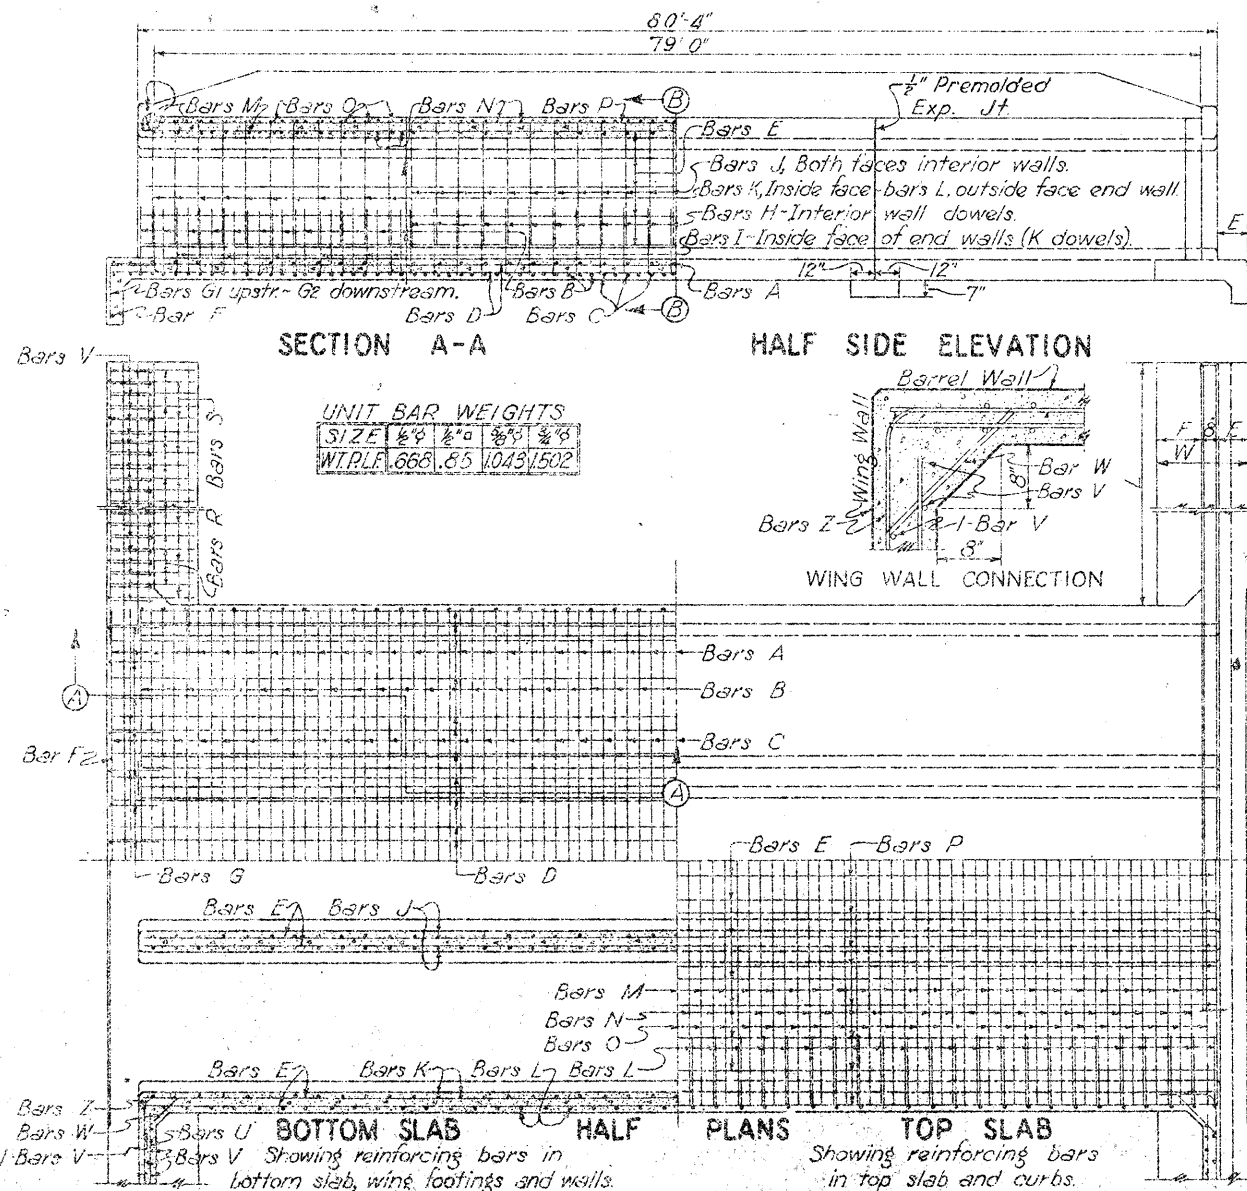 80'-4"
79'0"
½" Premolded
Exp. Jt.
Bars M
Bars O
Bars N
Bars P
B
Bars E
Bars J, Both faces interior walls.
Bars K, Inside face bars L, outside face end wall.
Bars H-Interior wall dowels.
Bars I-Inside face of end walls (K dowels).
E
12"
12"
7"
Bars G1 upstr.- G2 downstream.
Bars B
Bars A
Bar F
Bars D
Bars C
B
SECTION A-A
HALF SIDE ELEVATION
Bars V
Barrel Wall
UNIT BAR WEIGHTS
SIZE ½"φ ½"□ ⅝"φ ¾"φ
WT.P.L.F. .668 .85 1.043 1.502
Bars S
Bars R
Wing Wall
Bar W
Bars V
8"
Bars Z
1-Bar V
8"
WING WALL CONNECTION
F 8" E
W
L
Bars A
Bars B
A
Bars C
Bar F
A
Bars E
Bars P
Bars G
Bars D
Bars E
Bars J
Bars M
Bars N
Bars O
Bars E
Bars K
Bars L
Bars L
Bars Z
Bars W
1 Bars V
Bars U
Bars V
BOTTOM SLAB HALF PLANS TOP SLAB
Showing reinforcing bars in
bottom slab, wing footings and walls.
Showing reinforcing bars
in top slab and curbs.